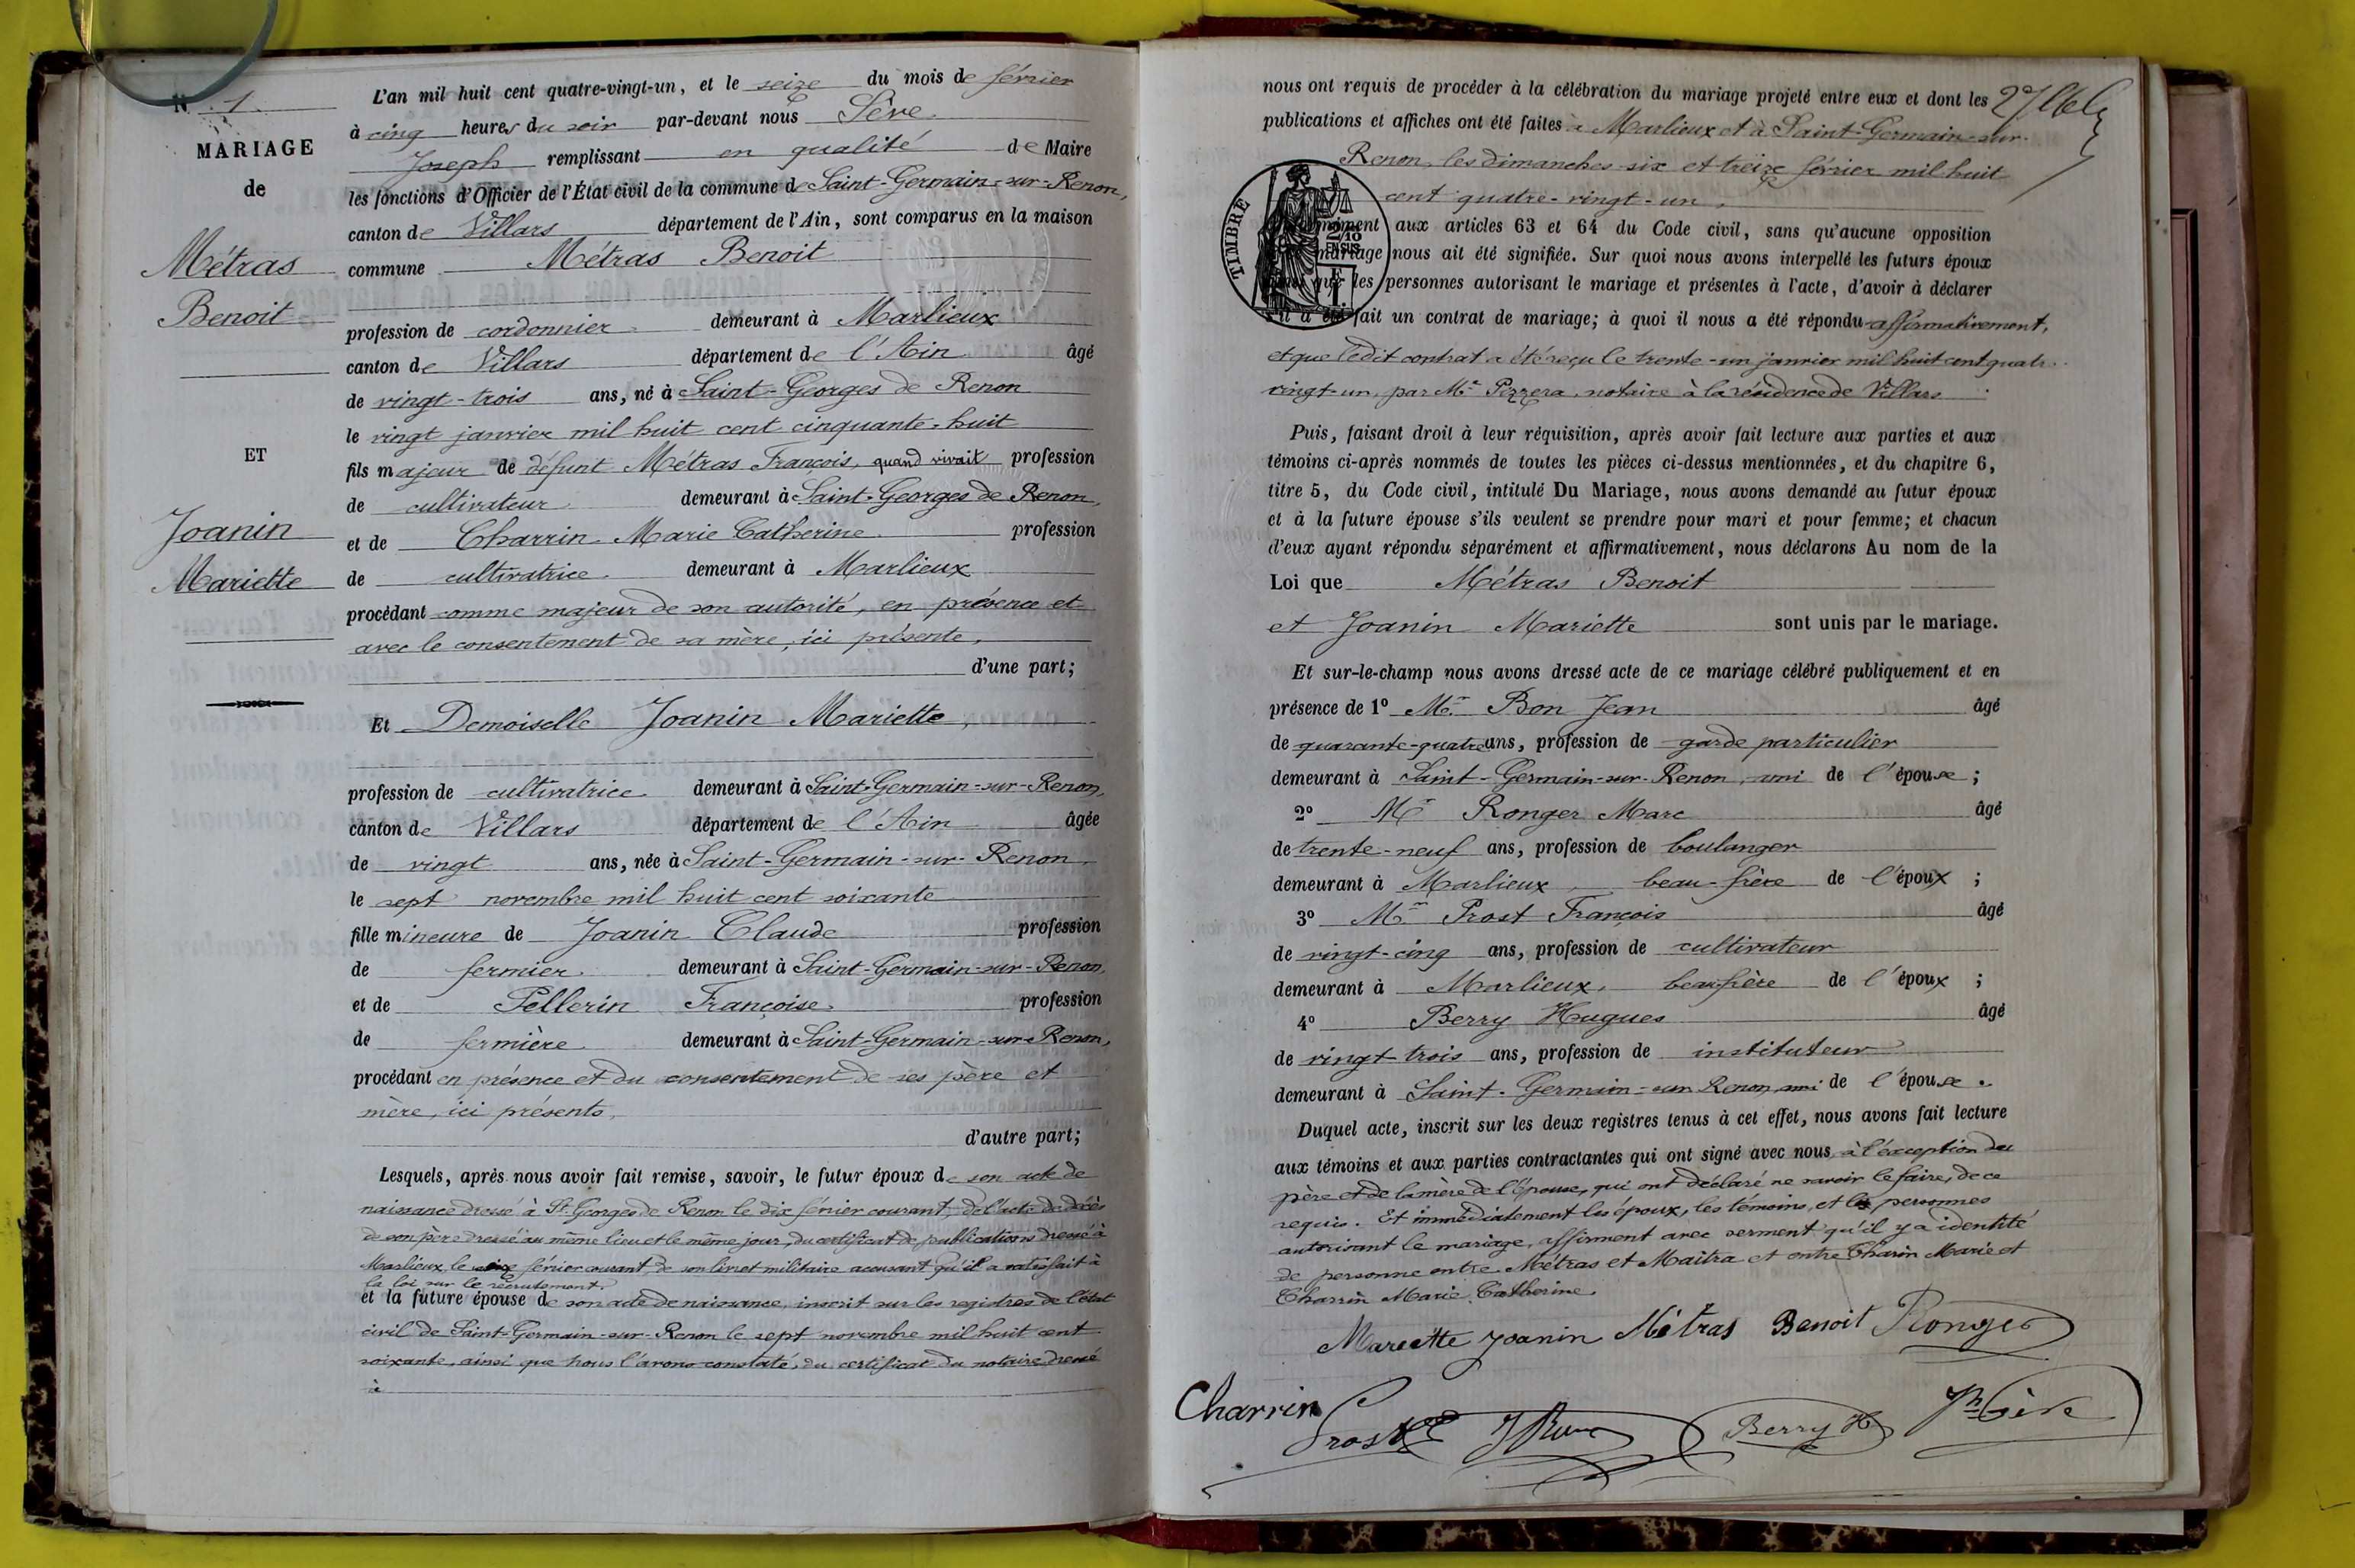 N° 1.
MARIAGE
de
Métras
Benoit
ET
Joanin
Mariette
L'an mil huit cent quatre-vingt-un, et le seize du mois de février
à cinq heures du soir par-devant nous Sève
Joseph remplissant en qualité de Maire
les fonctions d'Officier de l'État civil de la commune de Saint-Germain-sur-Renon,
canton de Villars département de l'Ain, sont comparus en la maison
commune Métras Benoit
profession de cordonnier demeurant à Marlieux
canton de Villars département de l'Ain âgé
de vingt-trois ans, né à Saint-Georges de Renon
le vingt janvier mil huit cent cinquante-huit
fils majeur de défunt Métras François, quand vivait profession
de cultivateur demeurant à Saint-Georges de Renon,
et de Charrin Marie Catherine profession
de cultivatrice demeurant à Marlieux
procédant comme majeur de son autorité, en présence et
avec le consentement de sa mère, ici présente,
d'une part;
Et Demoiselle Joanin Mariette,
profession de cultivatrice demeurant à Saint-Germain-sur-Renon,
canton de Villars département de l'Ain âgée
de vingt ans, née à Saint-Germain-sur-Renon,
le sept novembre mil huit cent soixante
fille mineure de Joanin Claude profession
de fermier demeurant à Saint-Germain-sur-Renon,
et de Pellerin Françoise profession
de fermière demeurant à Saint-Germain-sur-Renon,
procédant en présence et du consentement de ses père et
mère, ici présents,
d'autre part;
Lesquels, après nous avoir fait remise, savoir, le futur époux de son acte de
naissance dressé à St Georges de Renon le dix février courant, de l'acte de décès
de son père dressé au même lieu et le même jour, du certificat de publications dressé à
Marlieux le février courant, de son livret militaire accusant qu'il a satisfait à
la loi sur le recrutement.
et la future épouse de son acte de naissance, inscrit sur les registres de l'état
civil de Saint-Germain-sur-Renon le sept novembre mil huit cent
soixante, ainsi que nous l'avons constaté, du certificat du notaire dressé
à
nous ont requis de procéder à la célébration du mariage projeté entre eux et dont les
publications et affiches ont été faites à Marlieux et à Saint-Germain-sur-
Renon, les dimanches six et treize février mil huit
cent quatre-vingt-un,
TIMBRE
aux articles 63 et 64 du Code civil, sans qu'aucune opposition
mariage nous ait été signifiée. Sur quoi nous avons interpellé les futurs époux
les personnes autorisant le mariage et présentes à l'acte, d'avoir à déclarer
s'il a été fait un contrat de mariage; à quoi il nous a été répondu affirmativement,
et que ledit contrat a été reçu le trente-un janvier mil huit cent quatre-
vingt-un, par Me Pezzera, notaire à la résidence de Villars
Puis, faisant droit à leur réquisition, après avoir fait lecture aux parties et aux
témoins ci-après nommés de toutes les pièces ci-dessus mentionnées, et du chapitre 6,
titre 5, du Code civil, intitulé Du Mariage, nous avons demandé au futur époux
et à la future épouse s'ils veulent se prendre pour mari et pour femme; et chacun
d'eux ayant répondu séparément et affirmativement, nous déclarons Au nom de la
Loi que Métras Benoit
et Joanin Mariette sont unis par le mariage.
Et sur-le-champ nous avons dressé acte de ce mariage célébré publiquement et en
présence de 1° Mr Bon Jean âgé
de quarante-quatre ans, profession de garde particulier
demeurant à Saint-Germain-sur-Renon, ami de l'épouse;
2° Mr Ronger Marc âgé
de trente-neuf ans, profession de boulanger
demeurant à Marlieux, beau-frère de l'époux;
3° Mr Prost François âgé
de vingt-cinq ans, profession de cultivateur
demeurant à Marlieux, beau-frère de l'époux;
4° Berry Hugues âgé
de vingt-trois ans, profession de instituteur
demeurant à Saint-Germain-sur-Renon, ami de l'épouse.
Duquel acte, inscrit sur les deux registres tenus à cet effet, nous avons fait lecture
aux témoins et aux parties contractantes qui ont signé avec nous, à l'exception du
père et de la mère de l'épouse, qui ont déclaré ne savoir le faire, de ce
requis. Et immédiatement les époux, les témoins, et les personnes
autorisant le mariage, affirment avec serment qu'il y a identité
de personne entre Métras et Maitra et entre Charin Marie et
Charrin Marie Catherine.
Mariette Joanin Métras Benoit Ronger
Charrin Prost J Bon Berry H Jh Sève